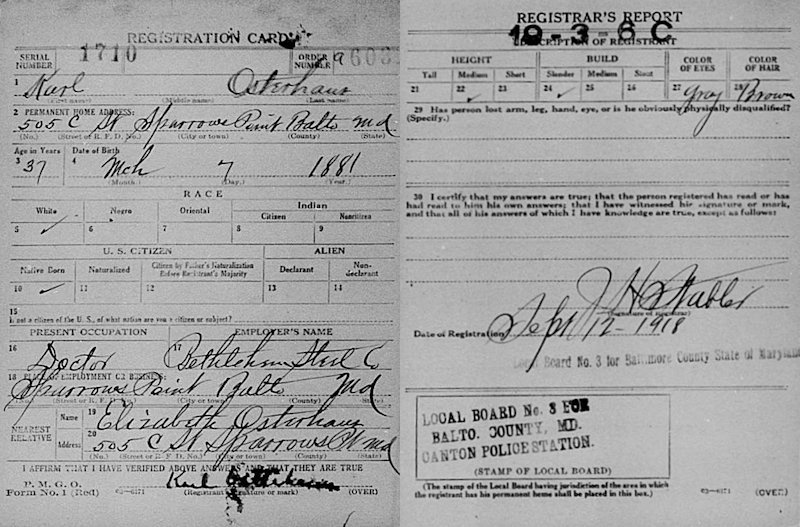 REGISTRATION CARD
SERIAL NUMBER 1710 ORDER NUMBER
1 Karl Osterhaus
(First name) (Middle name) (Last name)
2 PERMANENT HOME ADDRESS:
505 C St Sparrows Point Balto Md
(No.) (Street or R. F. D. No.) (City or town) (County) (State)
Age in Years Date of Birth
3 37 4 Mch 7 1881
(Month.) (Day.) (Year.)
RACE
White Negro Oriental Indian
Citizen Noncitizen
5 ✓ 6 7 8 9
U. S. CITIZEN ALIEN
Native Born Naturalized Citizen by Father's Naturalization Before Registrant's Majority Declarant Non-declarant
10 ✓ 11 12 13 14
15
If not a citizen of the U. S., of what nation are you a citizen or subject?
PRESENT OCCUPATION EMPLOYER'S NAME
16 Doctor 17 Bethlehem Steel Co
18 PLACE OF EMPLOYMENT OR BUSINESS:
Sparrows Point Balto Md
(No.) (Street or R. F. D. No.) (City or town) (County) (State)
NEAREST RELATIVE
Name 19 Elizabeth Osterhaus
Address 20 505 C St Sparrows Pt Md
(No.) (Street or R. F. D. No.) (City or town) (County) (State)
I AFFIRM THAT I HAVE VERIFIED ABOVE ANSWERS AND THAT THEY ARE TRUE
P. M. G. O.
Form No. 1 (Red) 03—6171 Karl Osterhaus
(Registrant's signature or mark) (OVER)
REGISTRAR'S REPORT
19-3-6 C
DESCRIPTION OF REGISTRANT
HEIGHT BUILD COLOR OF EYES COLOR OF HAIR
Tall Medium Short Slender Medium Stout
21 22 ✓ 23 24 ✓ 25 26 27 Gray 28 Brown
29 Has person lost arm, leg, hand, eye, or is he obviously physically disqualified?
(Specify.)
30 I certify that my answers are true; that the person registered has read or has
had read to him his own answers; that I have witnessed his signature or mark,
and that all of his answers of which I have knowledge are true, except as follows:
J H Stabler
(Signature of registrar)
Date of Registration Sept 12-1918
Local Board No. 3 for Baltimore County State of Maryland
LOCAL BOARD No. 3 FOR
BALTO. COUNTY, MD.
CANTON POLICE STATION.
(STAMP OF LOCAL BOARD)
(The stamp of the Local Board having jurisdiction of the area in which
the registrant has his permanent home shall be placed in this box.)
03—6171 (OVER)